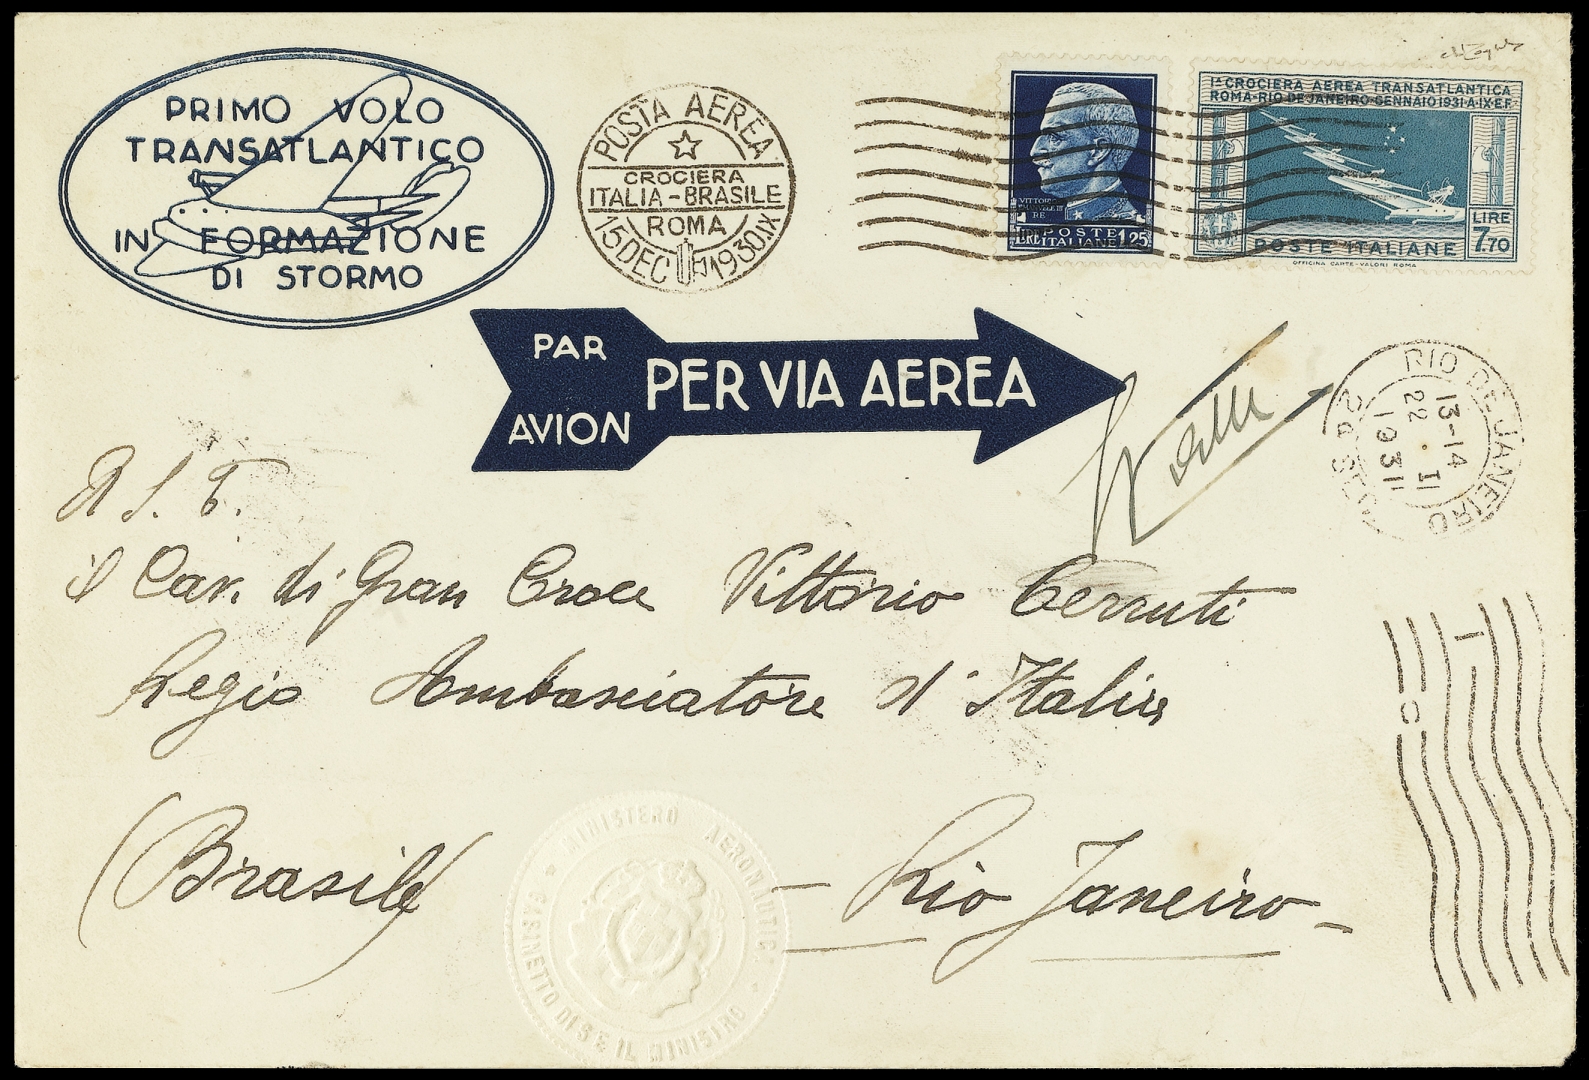 PRIMO VOLO
TRANSATLANTICO
IN FORMAZIONE
DI STORMO
POSTA AEREA
CROCIERA
ITALIA-BRASILE
ROMA
15 DEC 1930.IX
VITTORIO
RE
LIRE POSTE 1,25
ITALIANE
Iª CROCIERA AEREA TRANSATLANTICA
ROMA-RIO DE JANEIRO-GENNAIO 1931-A.IX-E.F.
LIRE
7,70
POSTE ITALIANE
OFFICINA CARTE-VALORI ROMA
PAR
AVION
PER VIA AEREA
RIO DE JANEIRO
13-14
22 . II
1931
il Cav. di Gran Croce Vittorio Cerruti
Regio Ambasciatore d'Italia
(Brasile)
- Rio Janeiro -
MINISTERO AERONAUTICA
GABINETTO DI S.E. IL MINISTRO